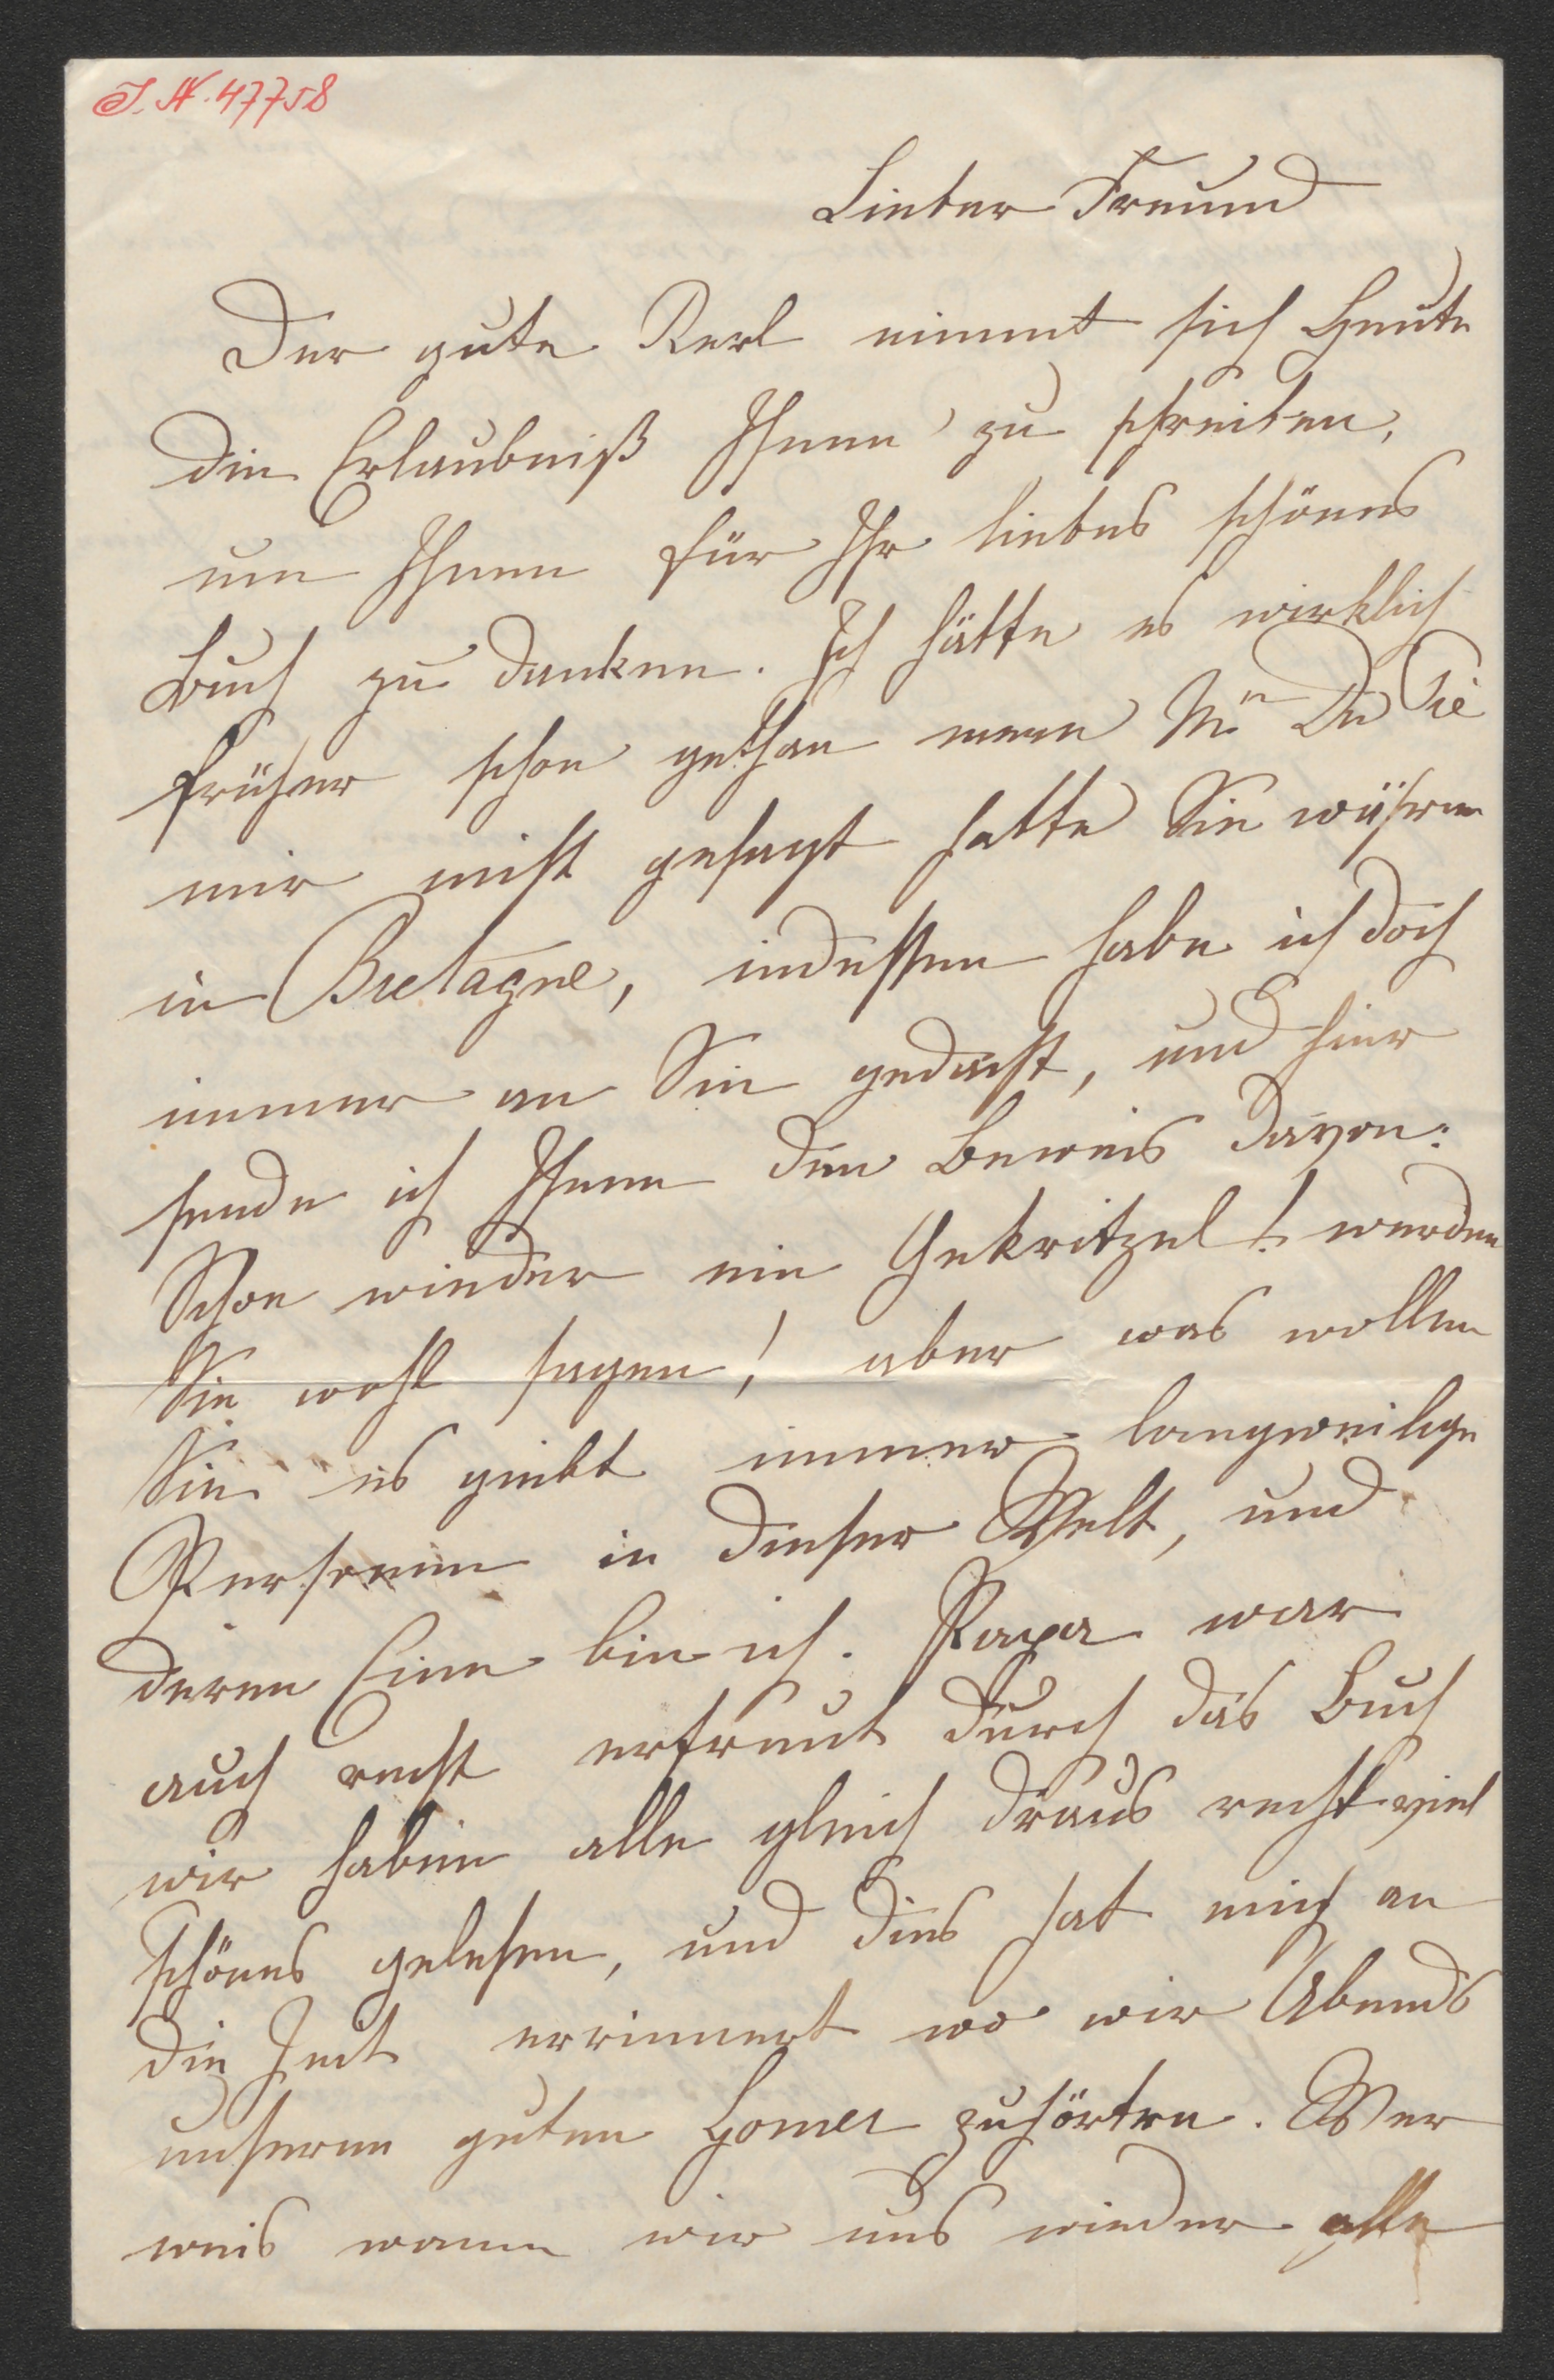 I. N. 47758
Lieber Freund
Der gute Kerl nimmt sich Heute
die Erlaubniß Ihnen zu schreiben,
um Ihnen für Ihr liebes schönes
Buch zu danken. Ich hätte es wirklich
früher schon gethan wenn
mir nicht gesagt hatte Sie währen
in Bretagne, indessen habe ich doch
immer an Sie gedacht, und hier
sende ich Ihnen den Beweis davon:
Schon wieder ein Gekritzel! werden
Sie wohl sagen! aber was wollen
Sie es giebt immer langweilige
Personen in dieser Welt, und
deren Eine bin ich. Papa war
auch recht erfreut durch das Buch
wir haben alle gleich draus recht viel
schönes gelesen, und dies hat mich an
die Zeit errinnert wo wir Abends
unseren guten Homer zuhörten. Wer
weis wann wir uns wieder alle